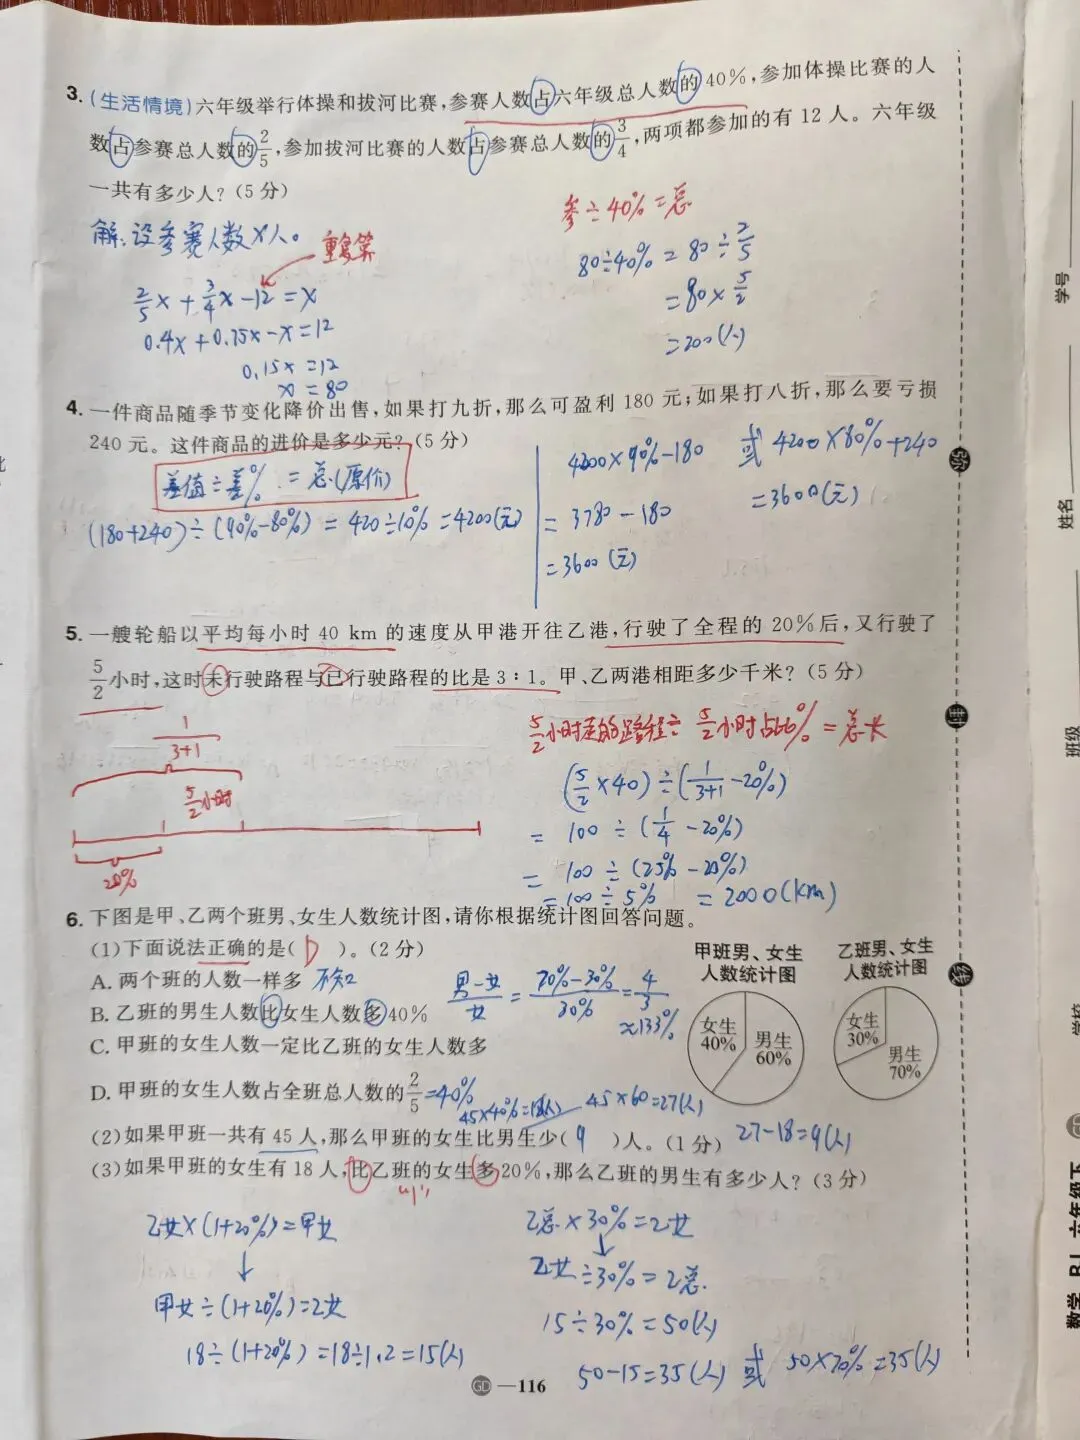 3. (生活情境)六年级举行体操和拔河比赛,参赛人数占六年级总人数的40%,参加体操比赛的人
数占参赛总人数的2/5,参加拔河比赛的人数占参赛总人数的3/4,两项都参加的有12人。六年级
一共有多少人?(5分)
解:设参赛人数x人。
重复算
2/5x+3/4x-12=x
0.4x+0.75x-x=12
0.15x=12
x=80
参÷40%=总
80÷40%=80÷2/5
=80×5/2
=200(人)
4. 一件商品随季节变化降价出售,如果打九折,那么可盈利180元;如果打八折,那么要亏损
240元。这件商品的进价是多少元?(5分)
差值÷差%=总(原价)
(180+240)÷(90%-80%)=420÷10%=4200(元)
4200×90%-180
=3780-180
=3600(元)
或 4200×80%+240
=3600(元)
5. 一艘轮船以平均每小时40 km的速度从甲港开往乙港,行驶了全程的20%后,又行驶了
5/2小时,这时未行驶路程与已行驶路程的比是3:1。甲、乙两港相距多少千米?(5分)
1/(3+1)
5/2小时
20%
5/2小时走的路程÷5/2小时占的%=总长
(5/2×40)÷(1/(3+1)-20%)
=100÷(1/4-20%)
=100÷(25%-20%)
=100÷5%=2000(km)
6. 下图是甲、乙两个班男、女生人数统计图,请你根据统计图回答问题。
(1)下面说法正确的是( D )。(2分)
A. 两个班的人数一样多 不知
B. 乙班的男生人数比女生人数多40%
(男-女)/女=(70%-30%)/30%=4/3
≈133%
C. 甲班的女生人数一定比乙班的女生人数多
D. 甲班的女生人数占全班总人数的2/5=40%
甲班男、女生
人数统计图
女生
40%
男生
60%
乙班男、女生
人数统计图
女生
30%
男生
70%
45×40%=18(人) 45×60=27(人)
(2)如果甲班一共有45人,那么甲班的女生比男生少( 9 )人。(1分) 27-18=9(人)
(3)如果甲班的女生有18人,比乙班的女生多20%,那么乙班的男生有多少人?(3分)
"1"
乙女×(1+20%)=甲女
甲女÷(1+20%)=乙女
18÷(1+20%)=18÷1.2=15(人)
乙总×30%=乙女
乙女÷30%=乙总.
15÷30%=50(人)
50-15=35(人) 或 50×70%=35(人)
GD —116
弥
封
线
学号
姓名
班级
学校
数学 BJ 六年级下